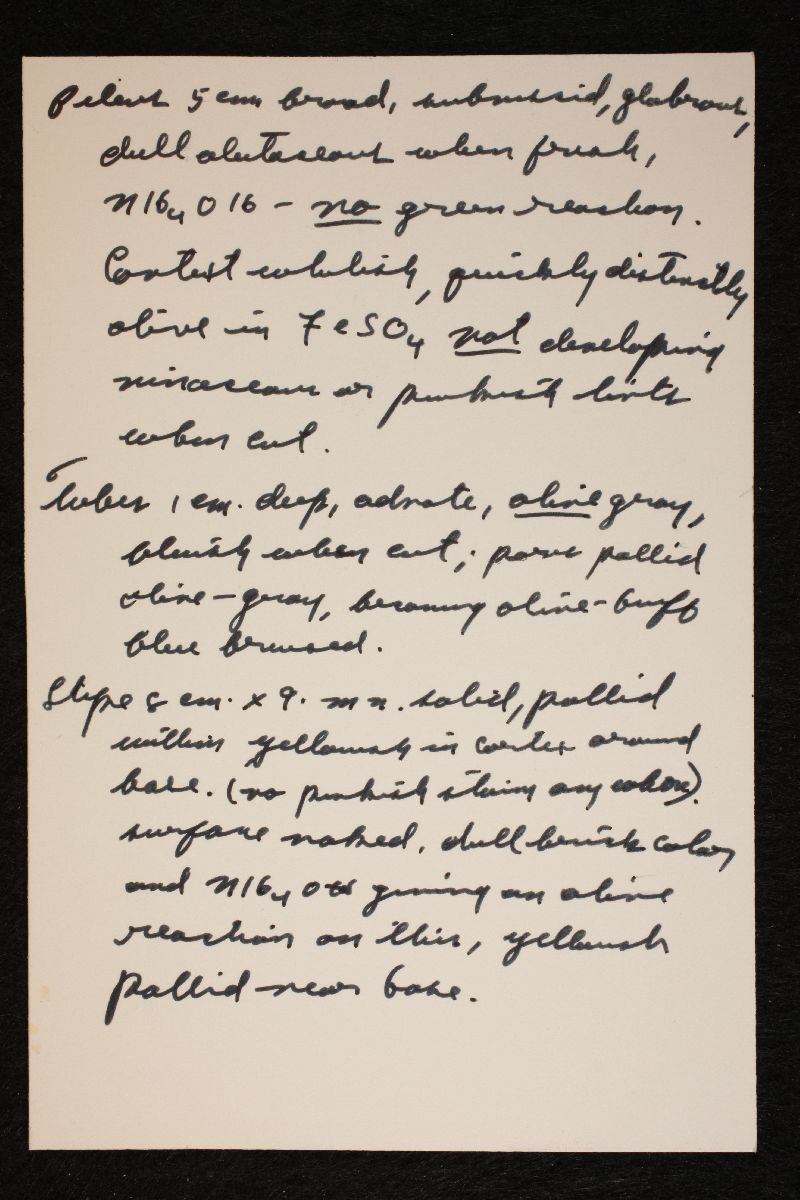 Pileus 5 cm broad, subviscid, glabrous,
dull alutaceous when fresh,
NH4OH - no green reaction.
Context whitish, quickly distinctly
olive in FeSO4 not developing
vinaceous or pinkish tints
when cut.
Tubes 1 cm. deep, adnate, olive gray,
bluish when cut; pores pallid
olive-gray, becoming olive-buff
blue bruised.
Stipe 8 cm. x 9. mm. solid, pallid
within yellowish in cortex around
base. (no pinkish stains anywhere).
surface naked, dull brick color
and NH4OH giving an olive
reaction on this, yellowish
pallid near base.